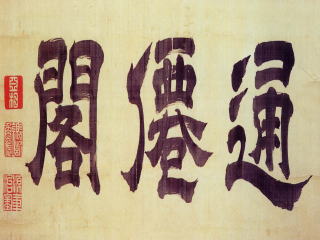 通僊閣